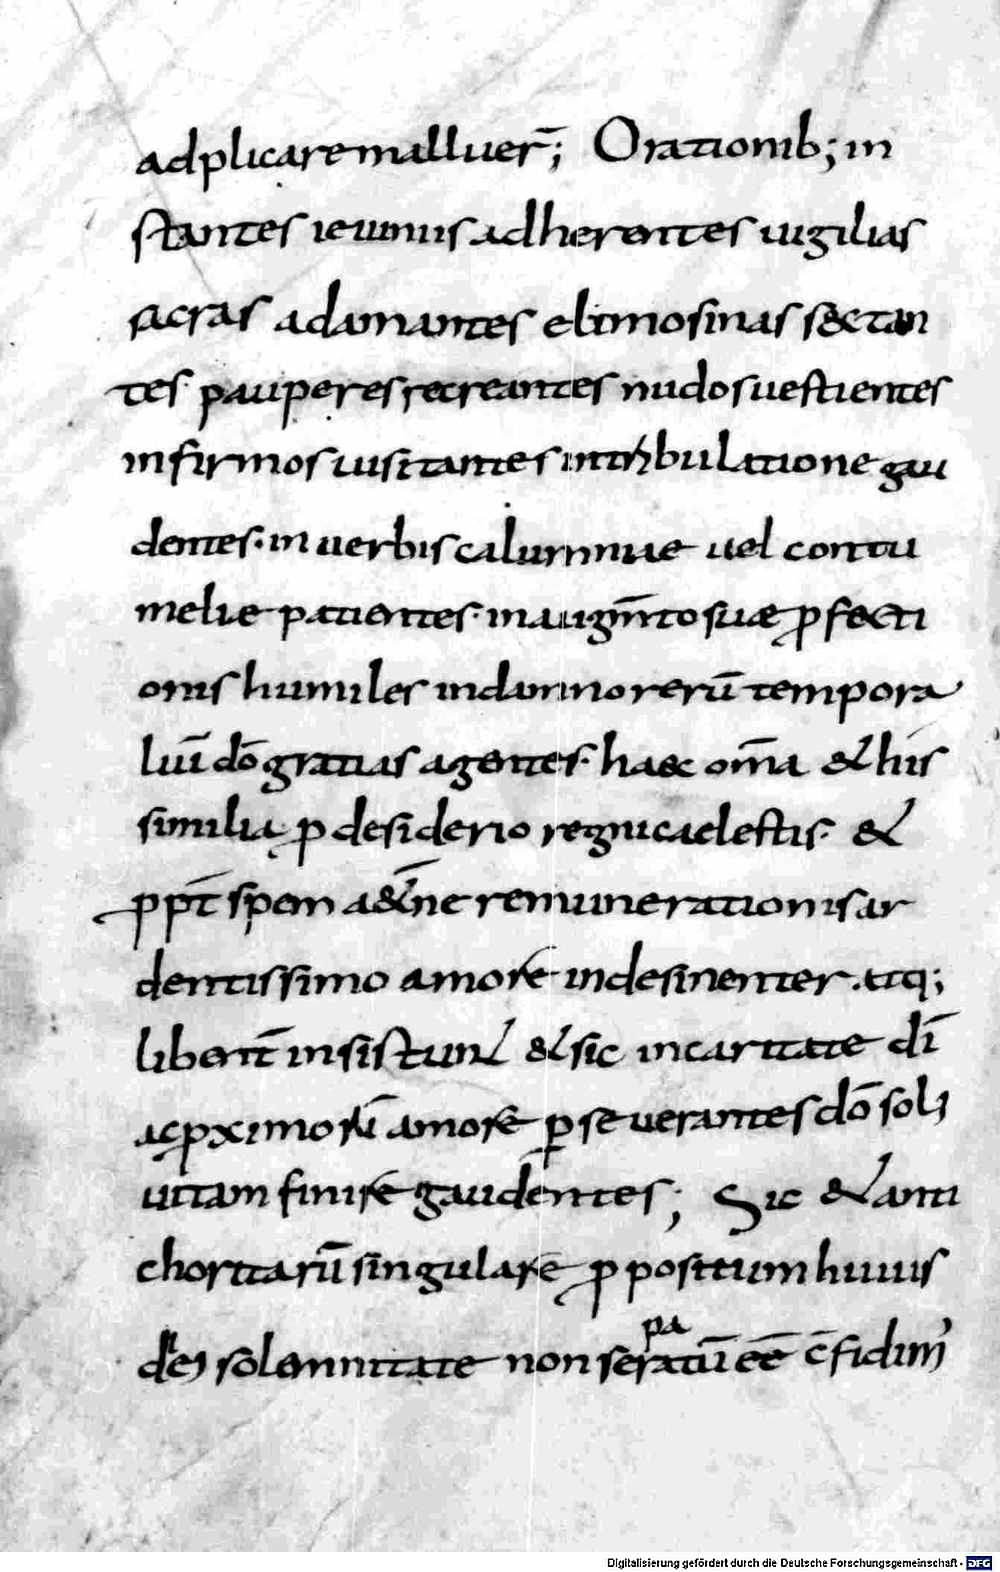 adplicare malluer̄; Orationib; in
stantes ieiuniis adherentes uigilias
sacras adamantes elimosinas sectan
tes· pauperes recreantes nudos uestientes
infirmos uisitantes in tribulatione gau
dentes· in uerbis calumniae uel contu
meliae patientes· in augm̄to suae ꝓfecti
onis humiles in damno rerū tempora
liū dō gratias agentes· haec om̄a & his
similia ꝓ desiderio regni caelestis· &
ꝓpt̄ spem aet̄ne remunerationis ar
dentissimo amore indesinenter· atq;
libent̄ insistunt & sic in caritate dī
ac ꝓximorū amore ꝑseuerantes dō soli
uitam finire gaudentes; Sic & anti
choritarū singulare ꝓpositum huius
diei solemnitate non separatū eē c̄fidim᾿
Digitalisierung gefördert durch die Deutsche Forschungsgemeinschaft - DFG